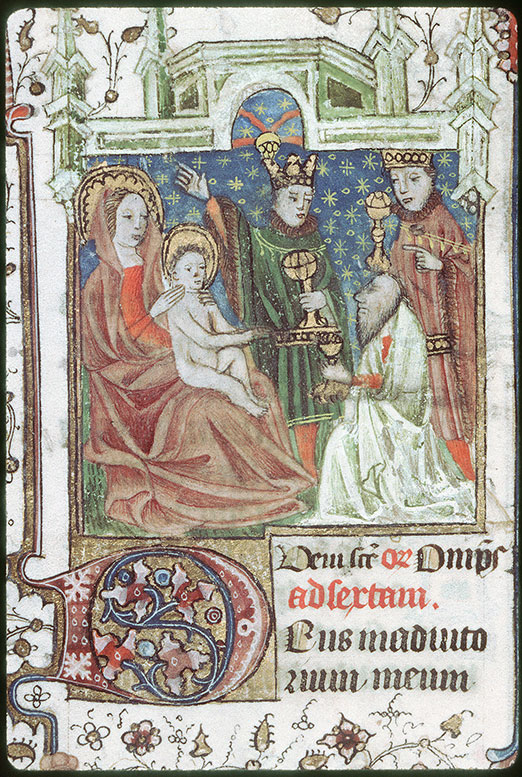 Veni scē or Dnīps
ad sextam.
Deus in adiuto
rium meum